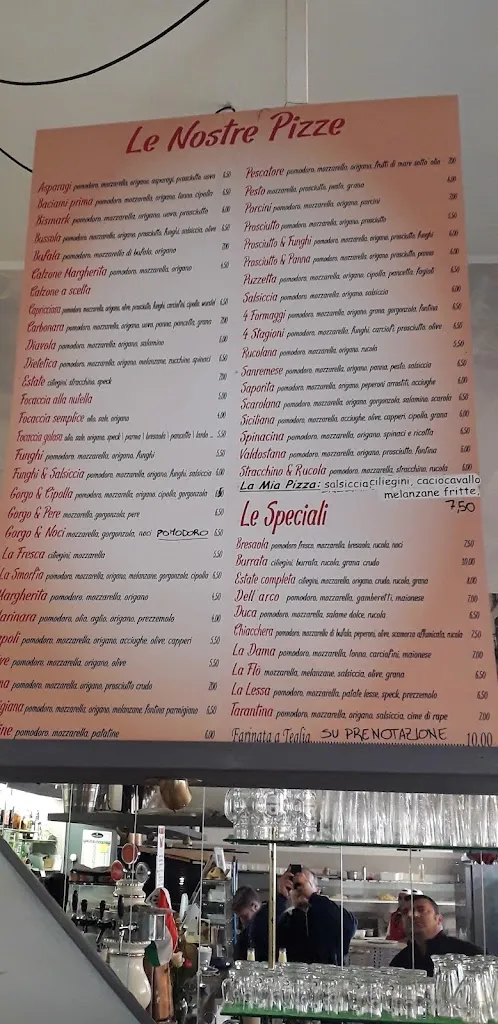 Le Nostre Pizze
Asparagi pomodoro, mozzarella, origano, asparagi, prosciutto, uova 6.50
Baciami prima pomodoro, mozzarella, origano, tonno, cipolla 6.50
Bismark pomodoro, mozzarella, origano, uova, prosciutto 6.00
Bussola pomodoro, mozzarella, origano, prosciutto, funghi, salsiccia, olive 6.50
Bufala pomodoro, mozzarella di bufala, origano 7.00
Calzone Margherita pomodoro, mozzarella, origano 6.50
Calzone a scelta
Capricciosa pomodoro, mozzarella, origano, olive, prosciutto, funghi, carciofini, cipolla, wurstel 6.50
Carbonara pomodoro, mozzarella, origano, uova, panna, pancetta, grana 7.00
Diavola pomodoro, mozzarella, origano, salamino 6.00
Dietetica pomodoro, mozzarella, origano, melanzane, zucchine, spinaci 6.50
Estate ciliegini, stracchino, speck 7.00
Focaccia alla nutella 5.00
Focaccia semplice olio, sale, origano 4.00
Focaccia golosa olio, sale, origano, speck \ parma \ bresaola \ pancetta \ lardo ... 5.50
Funghi pomodoro, mozzarella, origano, funghi 5.50
Funghi & Salsiccia pomodoro, mozzarella, origano, funghi, salsiccia 6.00
Gorgo & Cipolla pomodoro, mozzarella, origano, cipolla, gorgonzola
Gorgo & Pere mozzarella, gorgonzola, pere 6.50
Gorgo & Noci mozzarella, gorgonzola, noci POMODORO 6.50
La Fresca ciliegini, mozzarella 5.50
La Smorfia pomodoro, mozzarella, origano, melanzane, gorgonzola, cipolla 6.50
Margherita pomodoro, mozzarella, origano 4.50
arinara pomodoro, olio, aglio, origano, prezzemolo 4.00
apoli pomodoro, mozzarella, origano, acciughe, olive, capperi 5.50
ve pomodoro, mozzarella, origano, olive 5.50
ma pomodoro, mozzarella, origano, prosciutto crudo 7.00
migiana pomodoro, mozzarella, origano, melanzane, fontina parmigiana 6.50
ine pomodoro, mozzarella, patatine 6.00
Pescatore pomodoro, mozzarella, origano, frutti di mare sott'olio 7.00
Pesto mozzarella, prosciutto, pesto, grana 6.00
Porcini pomodoro, mozzarella, origano, porcini 7.00
Prosciutto pomodoro, mozzarella, origano, prosciutto
Prosciutto & Funghi pomodoro, mozzarella, origano, prosciutto, funghi 6.00
Prosciutto & Panna pomodoro, mozzarella, origano, prosciutto, panna 6.00
Puzzetta pomodoro, mozzarella, origano, cipolla, pancetta, fagioli 6.50
Salsiccia pomodoro, mozzarella, origano, salsiccia 6.00
4 Formaggi pomodoro, mozzarella, origano, grana, gorgonzola, fontina 6.50
4 Stagioni pomodoro, mozzarella, funghi, carciofi, prosciutto, olive 6.50
Rucolana pomodoro, mozzarella, origano, rucola 5.50
Sanremese pomodoro, mozzarella, origano, panna, pesto, salsiccia 6.50
Saporita pomodoro, mozzarella, origano, peperoni arrostiti, acciughe 6.00
Scarolana pomodoro, mozzarella, origano, gorgonzola, salamino, scarola 6.50
Siciliana pomodoro, mozzarella, acciughe, olive, capperi, cipolla, grana 6.00
Spinacina pomodoro, mozzarella, origano, spinaci e ricotta 6.50
Valdostana pomodoro, mozzarella, origano, prosciutto, fontina 6.00
Stracchino & Rucola pomodoro, mozzarella, stracchino, rucola 6.00
La Mia Pizza: salsiccia,ciliegini, caciocavallo
melanzane fritte,
7,50
Le Speciali
Bresaola pomodoro fresco, mozzarella, bresaola, rucola, noci 7.50
Burrata ciliegini, burrata, rucola, grana, crudo 10.00
Estate completa ciliegini, mozzarella, origano, crudo, rucola, grana 8.00
Dell'arco pomodoro, mozzarella, gamberetti, maionese 7.00
Duca pomodoro, mozzarella, salame dolce, rucola 6.50
Chiacchera pomodoro, mozzarella di bufala, peperoni, olive, scamorza affumicata, rucola 7.50
La Dama pomodoro, mozzarella, tonno, carciofini, maionese 7.00
La Flò mozzarella, melanzane, salsiccia, olive, grana 6.50
La Lessa pomodoro, mozzarella, patate lesse, speck, prezzemolo 6.50
Tarantina pomodoro, mozzarella, origano, salsiccia, cime di rape 7.00
Farinata a Teglia. SU PRENOTAZIONE 10.00